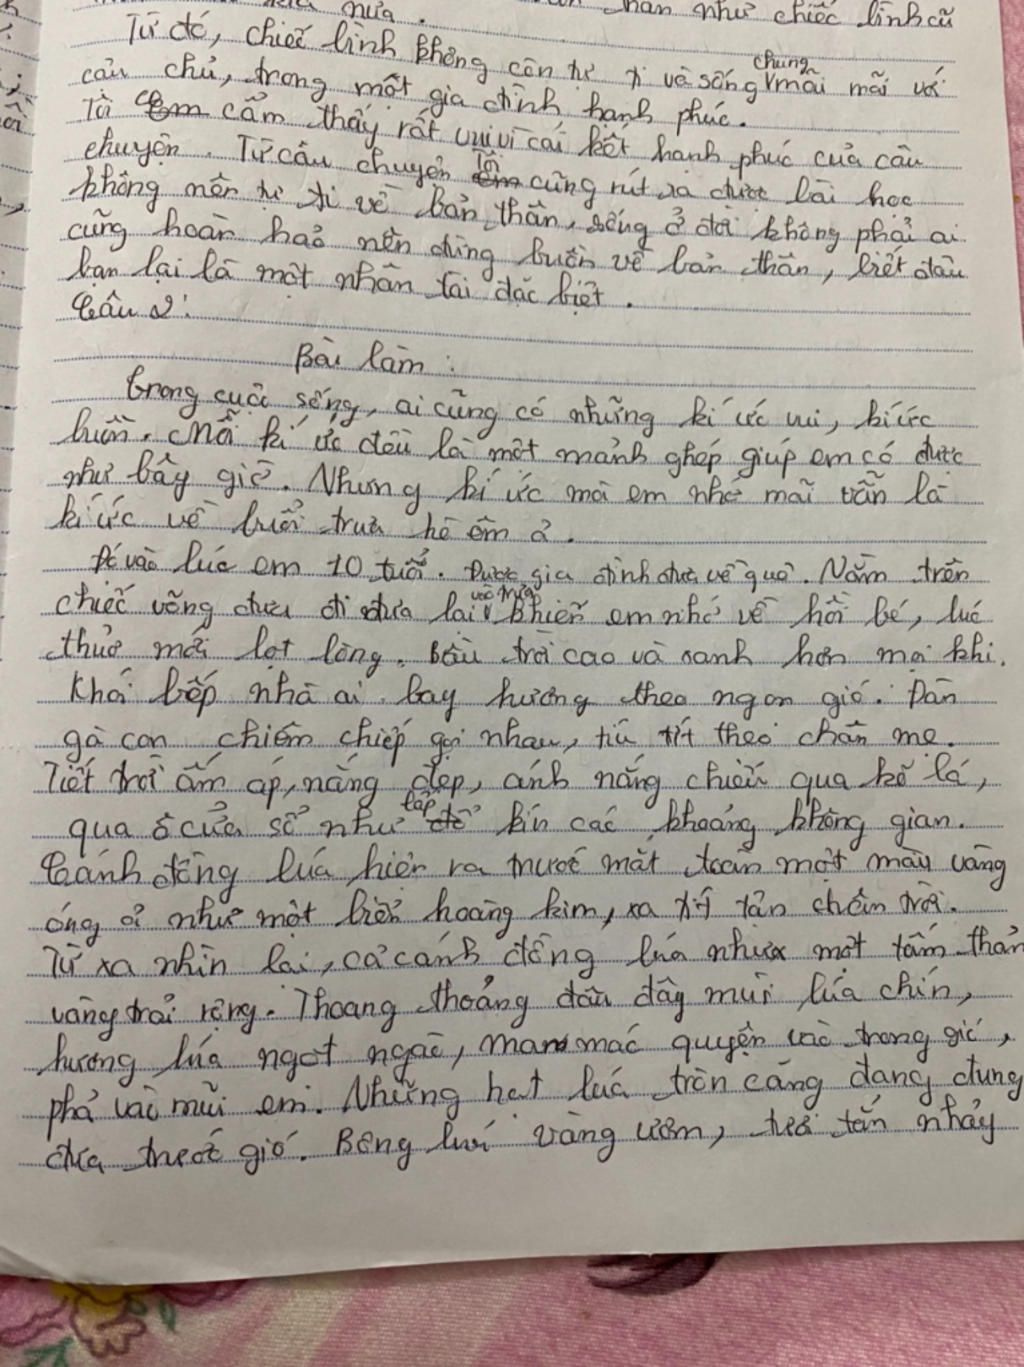 nữa. thân như chiếc bình cũ
Từ đó, chiếc bình không còn tự ti và sống chung mãi mãi với
cậu chủ, trong một gia đình hạnh phúc.
Tôi cảm thấy rất vui vì cái kết hạnh phúc của câu
chuyện. Từ câu chuyện tôi cũng rút ra được bài học
không nên tự ti về bản thân, sống ở đời không phải ai
cũng hoàn hảo nên đừng buồn về bản thân, biết đâu
bạn lại là một nhân tài đặc biệt.
Câu 2:
Bài làm:
Trong cuộc sống, ai cũng có những kí ức vui, kí ức
buồn. Mỗi kí ức đều là một mảnh ghép giúp em có được
như bây giờ. Nhưng kí ức mà em nhớ mãi vẫn là
kí ức về buổi trưa hè êm ả.
Đó vào lúc em 10 tuổi. Được gia đình đưa về quê. Nằm trên
chiếc võng đưa đi đưa lại vào trưa khiến em nhớ về hồi bé, lúc
thuở mới lọt lòng. Bầu trời cao và xanh hơn mọi khi.
Khói bếp nhà ai bay hương theo ngọn gió. Đàn
gà con chiêm chiếp gọi nhau, tíu tít theo chân mẹ.
Tiết trời ấm áp, nắng đẹp, ánh nắng chiếu qua kẽ lá,
qua ô cửa sổ như lấp kín các khoảng không gian.
Cánh đồng lúa hiện ra trước mắt toàn một màu vàng
óng ả như một biển hoàng kim, xa tít tận chân trời.
Từ xa nhìn lại, cả cánh đồng lúa như một tấm thảm
vàng trải rộng. Thoang thoảng đâu đây mùi lúa chín,
hương lúa ngọt ngào, man mác quyện vào trong gió,
phả vào mũi em. Những hạt lúa tròn căng đang đung
đưa trước gió. Bông lúa vàng ươm, tươi tắn nhảy